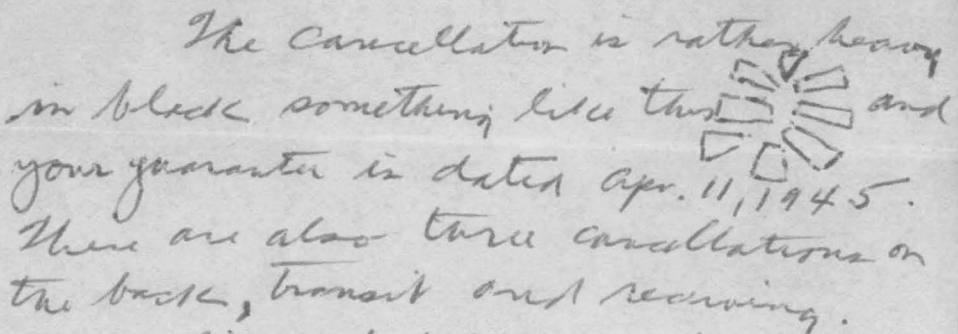 The cancellation is rather heavy
in black something like this and
your guarantee is dated Apr. 11, 1945.
There are also three cancellations on
the back, transit and receiving.